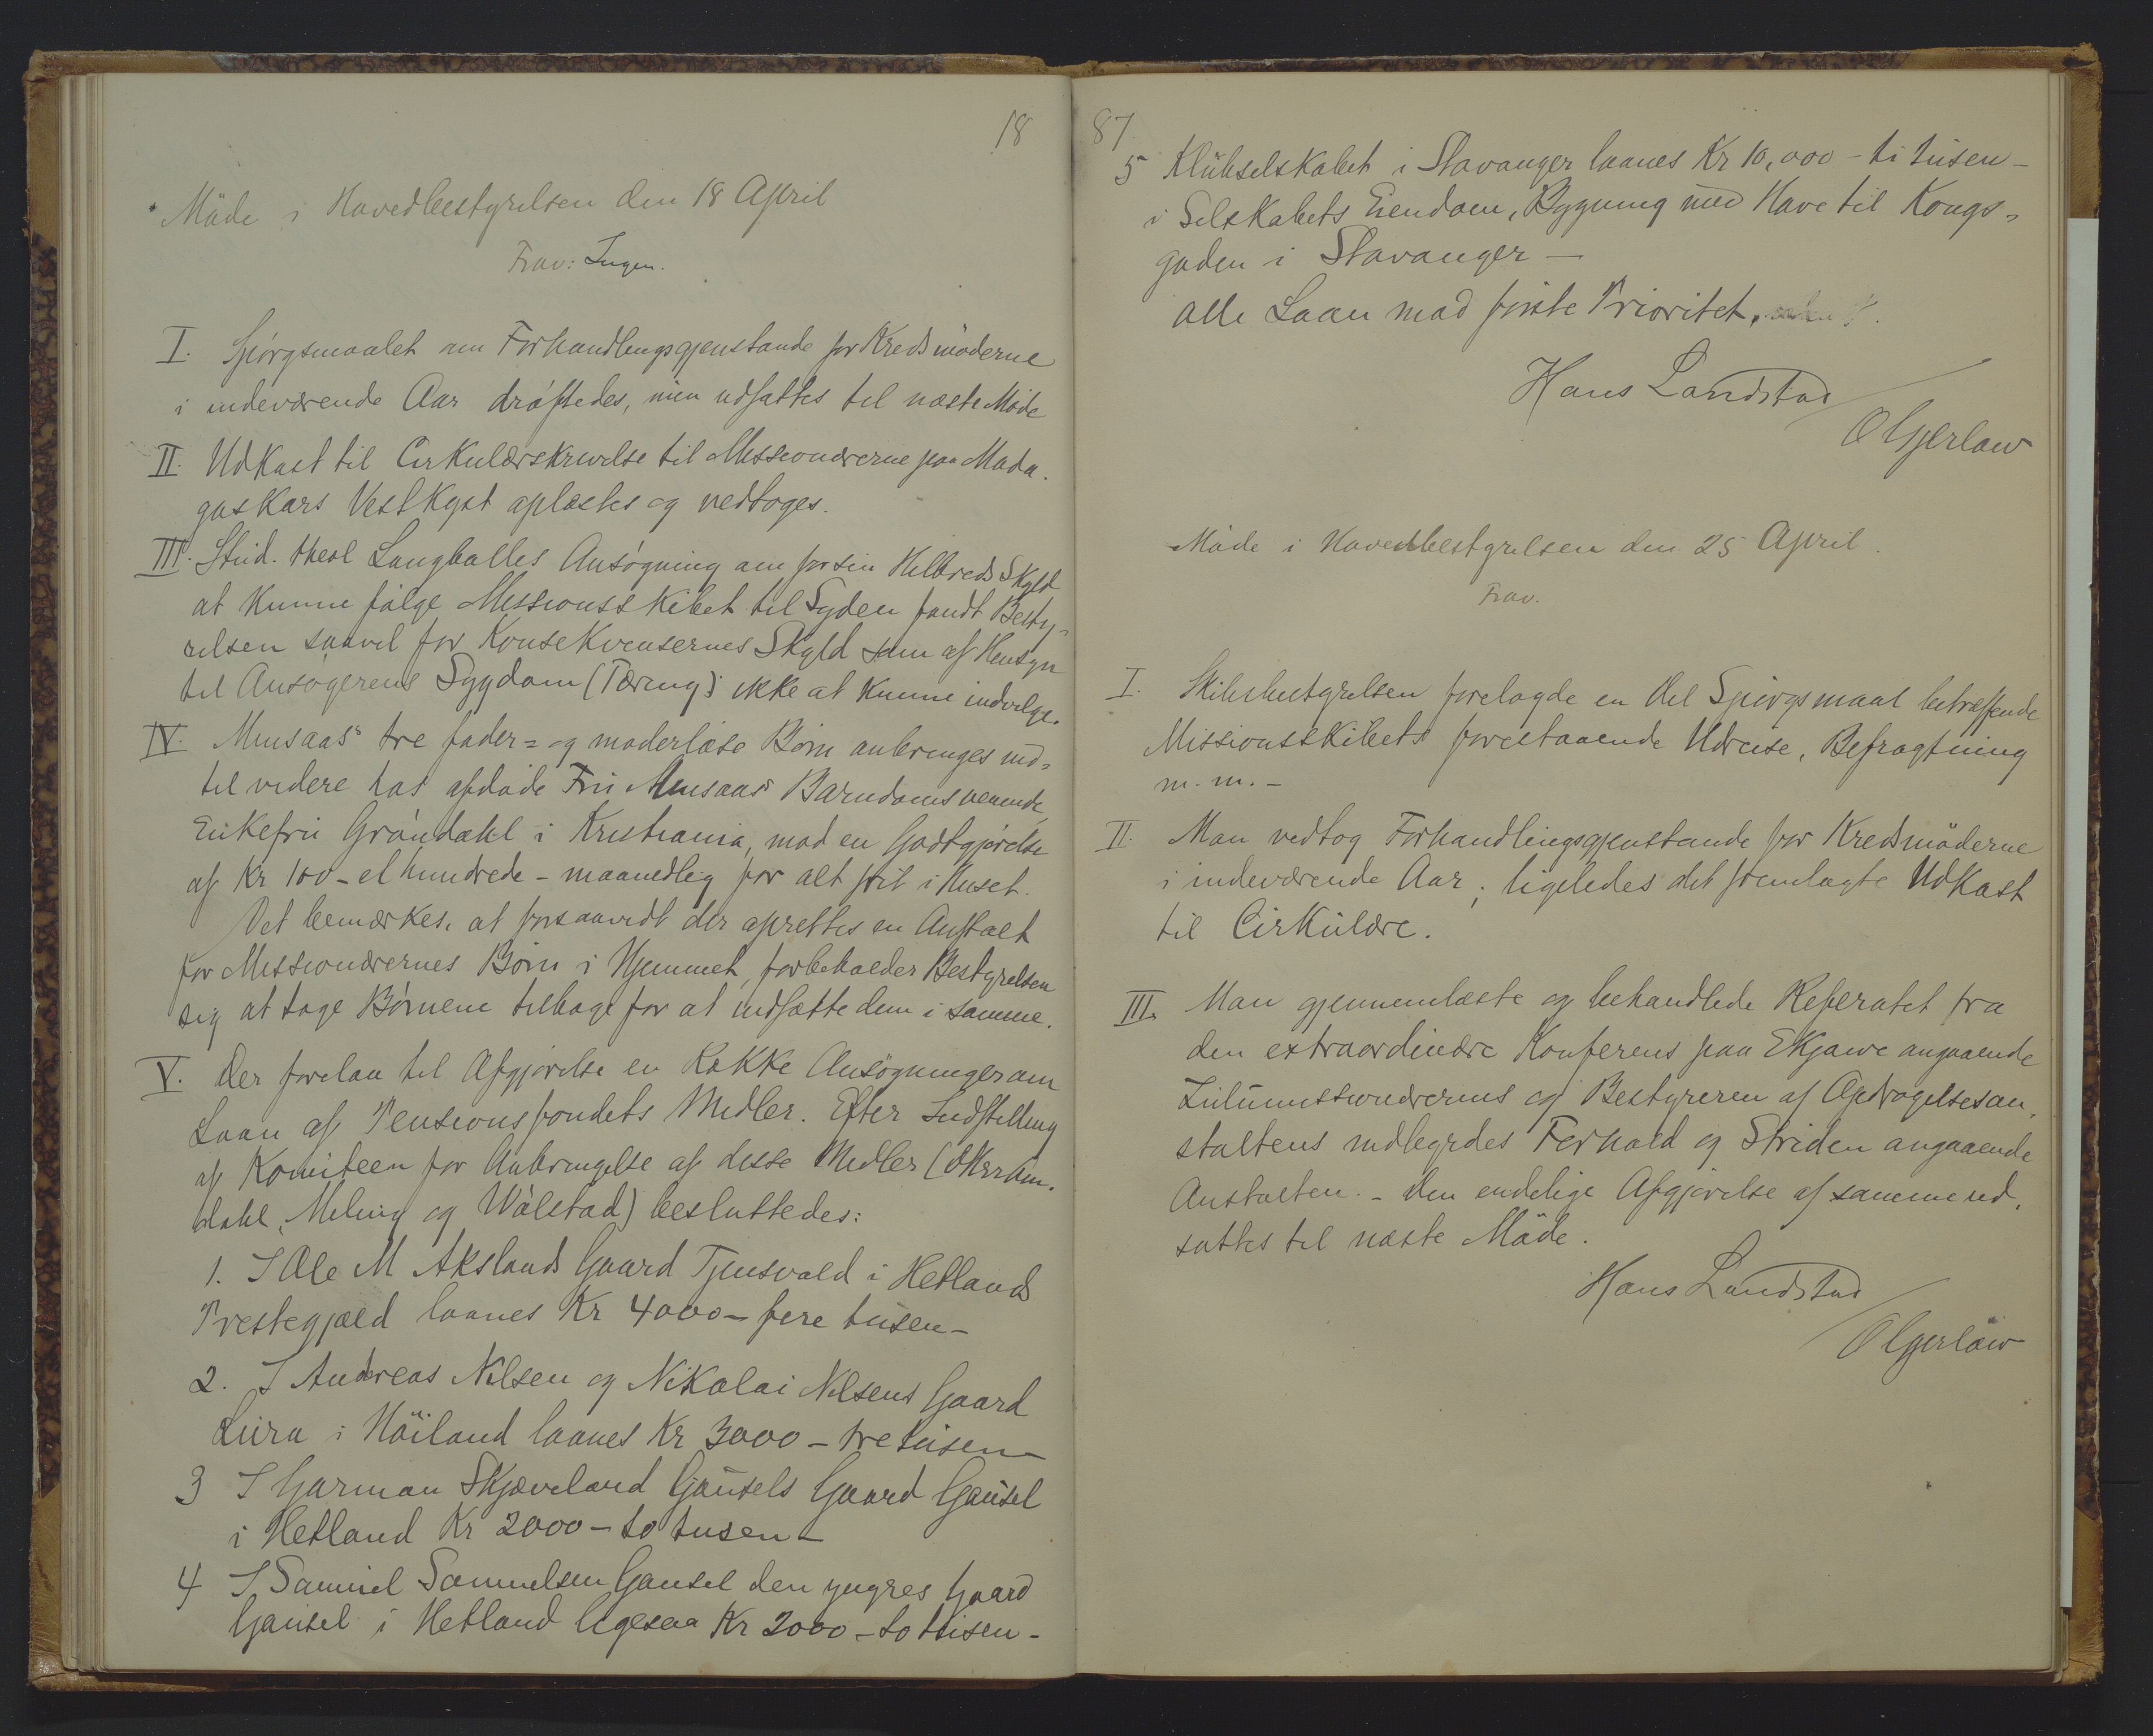 18
Möde i Hovedbestyrelsen den 18 April
Frav: Ingen.
I. Spörgsmaalet om Forhandlingsgjenstande for Kredsmöderne
i indeværende Aar dröftedes, men udsattes til næste Möde
II. Udkast til Cirkulærskrivelse til Missionærerne paa Mada-
gaskars Vestkyst oplæstes og vedtoges.
III. Stud. theol Langballes Ansögning om for sin Helbreds Skyld
at kunne fölge Missionsskibet til Syden fandt Besty-
relsen saavel for Konsekvensernes Skyld som af Hensyn
til Ansögerens Sygdom (Tæring) ikke at kunne indvilge.
IV. Minsaas' tre fader- og moderlöse Börn anbringes ind-
til videre hos afdöde Fru Minsaas' Barndomsveninde,
Enkefru Gröndahl i Kristiania, mod en Godtgjörelse
af Kr 100 - et hundrede - maanedlig for alt frit i huset.
Det bemærkes, at forsaavidt der oprettes en Anstalt
for Missionærernes Börn i Hjemmet, forbeholder Bestyrelsen
sig at tage Börnene tilbage for at indsætte dem i samme.
V. Der forelaa til Afgjörelse en Række Ansögninger om
Laan af Pensionsfondets Midler. Efter Indstilling
af Komiteen for Anbringelse af disse Midler (OHrr Am-
dahl, Meling og Wölstad) besluttedes:
1. I Ole M Akslands Gaard Tjensvold i Hetlands
Prestegjæld laanes Kr 4000 - fire tusen -
2. I Andreas Nilsen og Nikolai Nilsens Gaard
Lura i Höiland laanes Kr 3000 - tre tusen -
3 I Garman Skjæveland Gausels Gaard Gausel
i Hetland Kr 2000 - to tusen -
4 I Samuel Samuelsen Gausel den yngres Gaard
Gausel i Hetland ligesaa Kr 2000 - to tusen -
87
5 Klubselskabet i Stavanger laanes Kr 10,000 - ti tusen -
i Selskabets Eiendom, Bygning med Have til Kongs-
gaden i Stavanger -
alle Laan mod förste Prioritet.
Hans Landstad
O Gjerlöw
Möde i Hovedbestyrelsen den 25 April.
Frav.
I. Skibsbestyrelsen forelagde en del Spörgsmaal betræffende
Missionsskibets forestaaende Udreise, Befragtning
m. m. -
II. Man vedtog Forhandlingsgjenstande for Kredsmöderne
i indeværende Aar; ligeledes det fremlagte Udkast
til Cirkulære.
III. Man gjennemlæste og behandlede Referatet fra
den extraordinære Konferens paa Ekjowe angaaende
Zulumissionærernes og Bestyreren af Opdragelsesan-
staltens indbyrdes Forhold og Striden angaaende
Anstalten. - Den endelige Afgjörelse af samme ud-
sattes til næste Möde.
Hans Landstad
O Gjerlöw